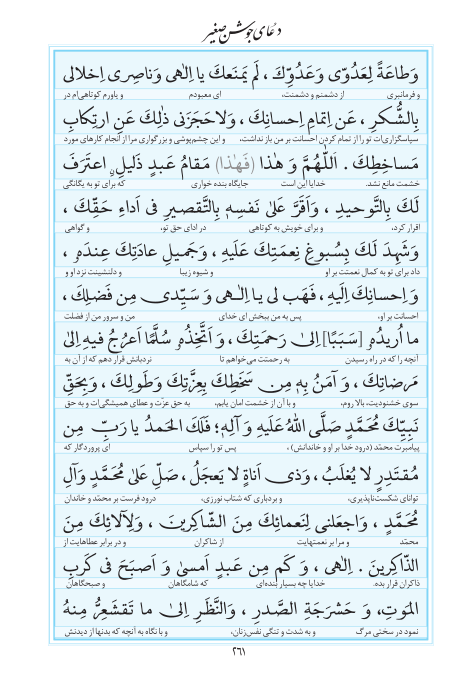 دعای جوشن صغیر
وَطاعَةً لِعَدُوّى وَعَدُوِّكَ ، لَم يَمنَعكَ يا اِلٰهى وَناصِرى اِخلالى
و فرمانبری از دشمنم و دشمنت، ای معبودم و یاورم کوتاهی‌ام در
بِالشُّكرِ ، عَن اِتمامِ اِحسانِكَ ، وَلا حَجَزَنى ذٰلِكَ عَنِ ارتِكابِ
سپاسگزاری‌ات تو را از تمام کردن احسانت بر من باز نداشت، و این چشم‌پوشی و بزرگواری مرا از انجام کارهای مورد
مَساخِطِكَ . اَللّٰهُمَّ وَ هٰذا (فَهٰذا) مَقامُ عَبدٍ ذَليلٍ اعتَرَفَ
خشمت مانع نشد. خدایا این است جایگاه بنده خواری که برای تو به یگانگی
لَكَ بِالتَّوحيدِ ، وَاَقَرَّ عَلىٰ نَفسِهٖ بِالتَّقصيرِ فى اَداءِ حَقِّكَ ،
اقرار کرد، و برای خویش به کوتاهی در ادای حق تو، و گواهی
وَشَهِدَ لَكَ بِسُبوغِ نِعمَتِكَ عَلَيهِ ، وَجَميلِ عادَتِكَ عِندَهٗ ،
داد برای تو به کمال نعمتت بر او و شیوه زیبا و دلنشینت نزد او و
وَاِحسانِكَ اِلَيهِ ، فَهَب لى يا اِلٰـهى وَ سَيِّدى مِن فَضلِكَ ،
احسانت بر او، پس به من ببخش ای خدای من و سرور من از فضلت
ما اُريدُهٗ [سَبَبًا] اِلىٰ رَحمَتِكَ ، وَ اَتَّخِذُهٗ سُلَّمًا اَعرُجُ فيهِ اِلىٰ
آنچه را که در راه رسیدن به رحمتت می‌خواهم تا نردبانش قرار دهم که از آن به
مَرضاتِكَ ، وَ آمَنُ بِهٖ مِن سَخَطِكَ بِعِزَّتِكَ وَطَولِكَ ، وَبِحَقِّ
سوی خشنودیت، بالا روم، و با آن از خشمت امان یابم، به حق عزّت و عطای همیشگی‌ات و به حق
نَبِيِّكَ مُحَمَّدٍ صَلَّى اللّٰهُ عَلَيهِ وَ آلِهٖ؛ فَلَكَ الحَمدُ يا رَبِّ مِن
پیامبرت محمّد (درود خدا بر او و خاندانش)، پس تو را سپاس ای پروردگار که
مُقتَدِرٍ لا يُغلَبُ ، وَذى اَناةٍ لا يَعجَلُ ، صَلِّ عَلىٰ مُحَمَّدٍ وَآلِ
توانای شکست‌ناپذیری، و بردباری که شتاب نورزی، درود فرست بر محمّد و خاندان
مُحَمَّدٍ ، وَاجعَلنى لِنَعمائِكَ مِنَ الشّاكِرينَ ، وَلِآلائِكَ مِنَ
محمّد و مرا بر نعمتهایت از شاکران و در برابر عطاهایت از
الذّاكِرينَ . اِلٰهى ، وَ كَم مِن عَبدٍ اَمسىٰ وَ اَصبَحَ فى كَربِ
ذاکران قرار بده. خدایا چه بسیار بنده‌ای که شامگاهان و صبحگاهان
المَوتِ، وَ حَشرَجَةِ الصَّدرِ ، وَالنَّظَرِ اِلىٰ ما تَقشَعِرُّ مِنهُ
نمود در سختی مرگ و به شدت و تنگی نفس‌زنان، و با نگاه به آنچه که بدنها از دیدنش
۲۶۱